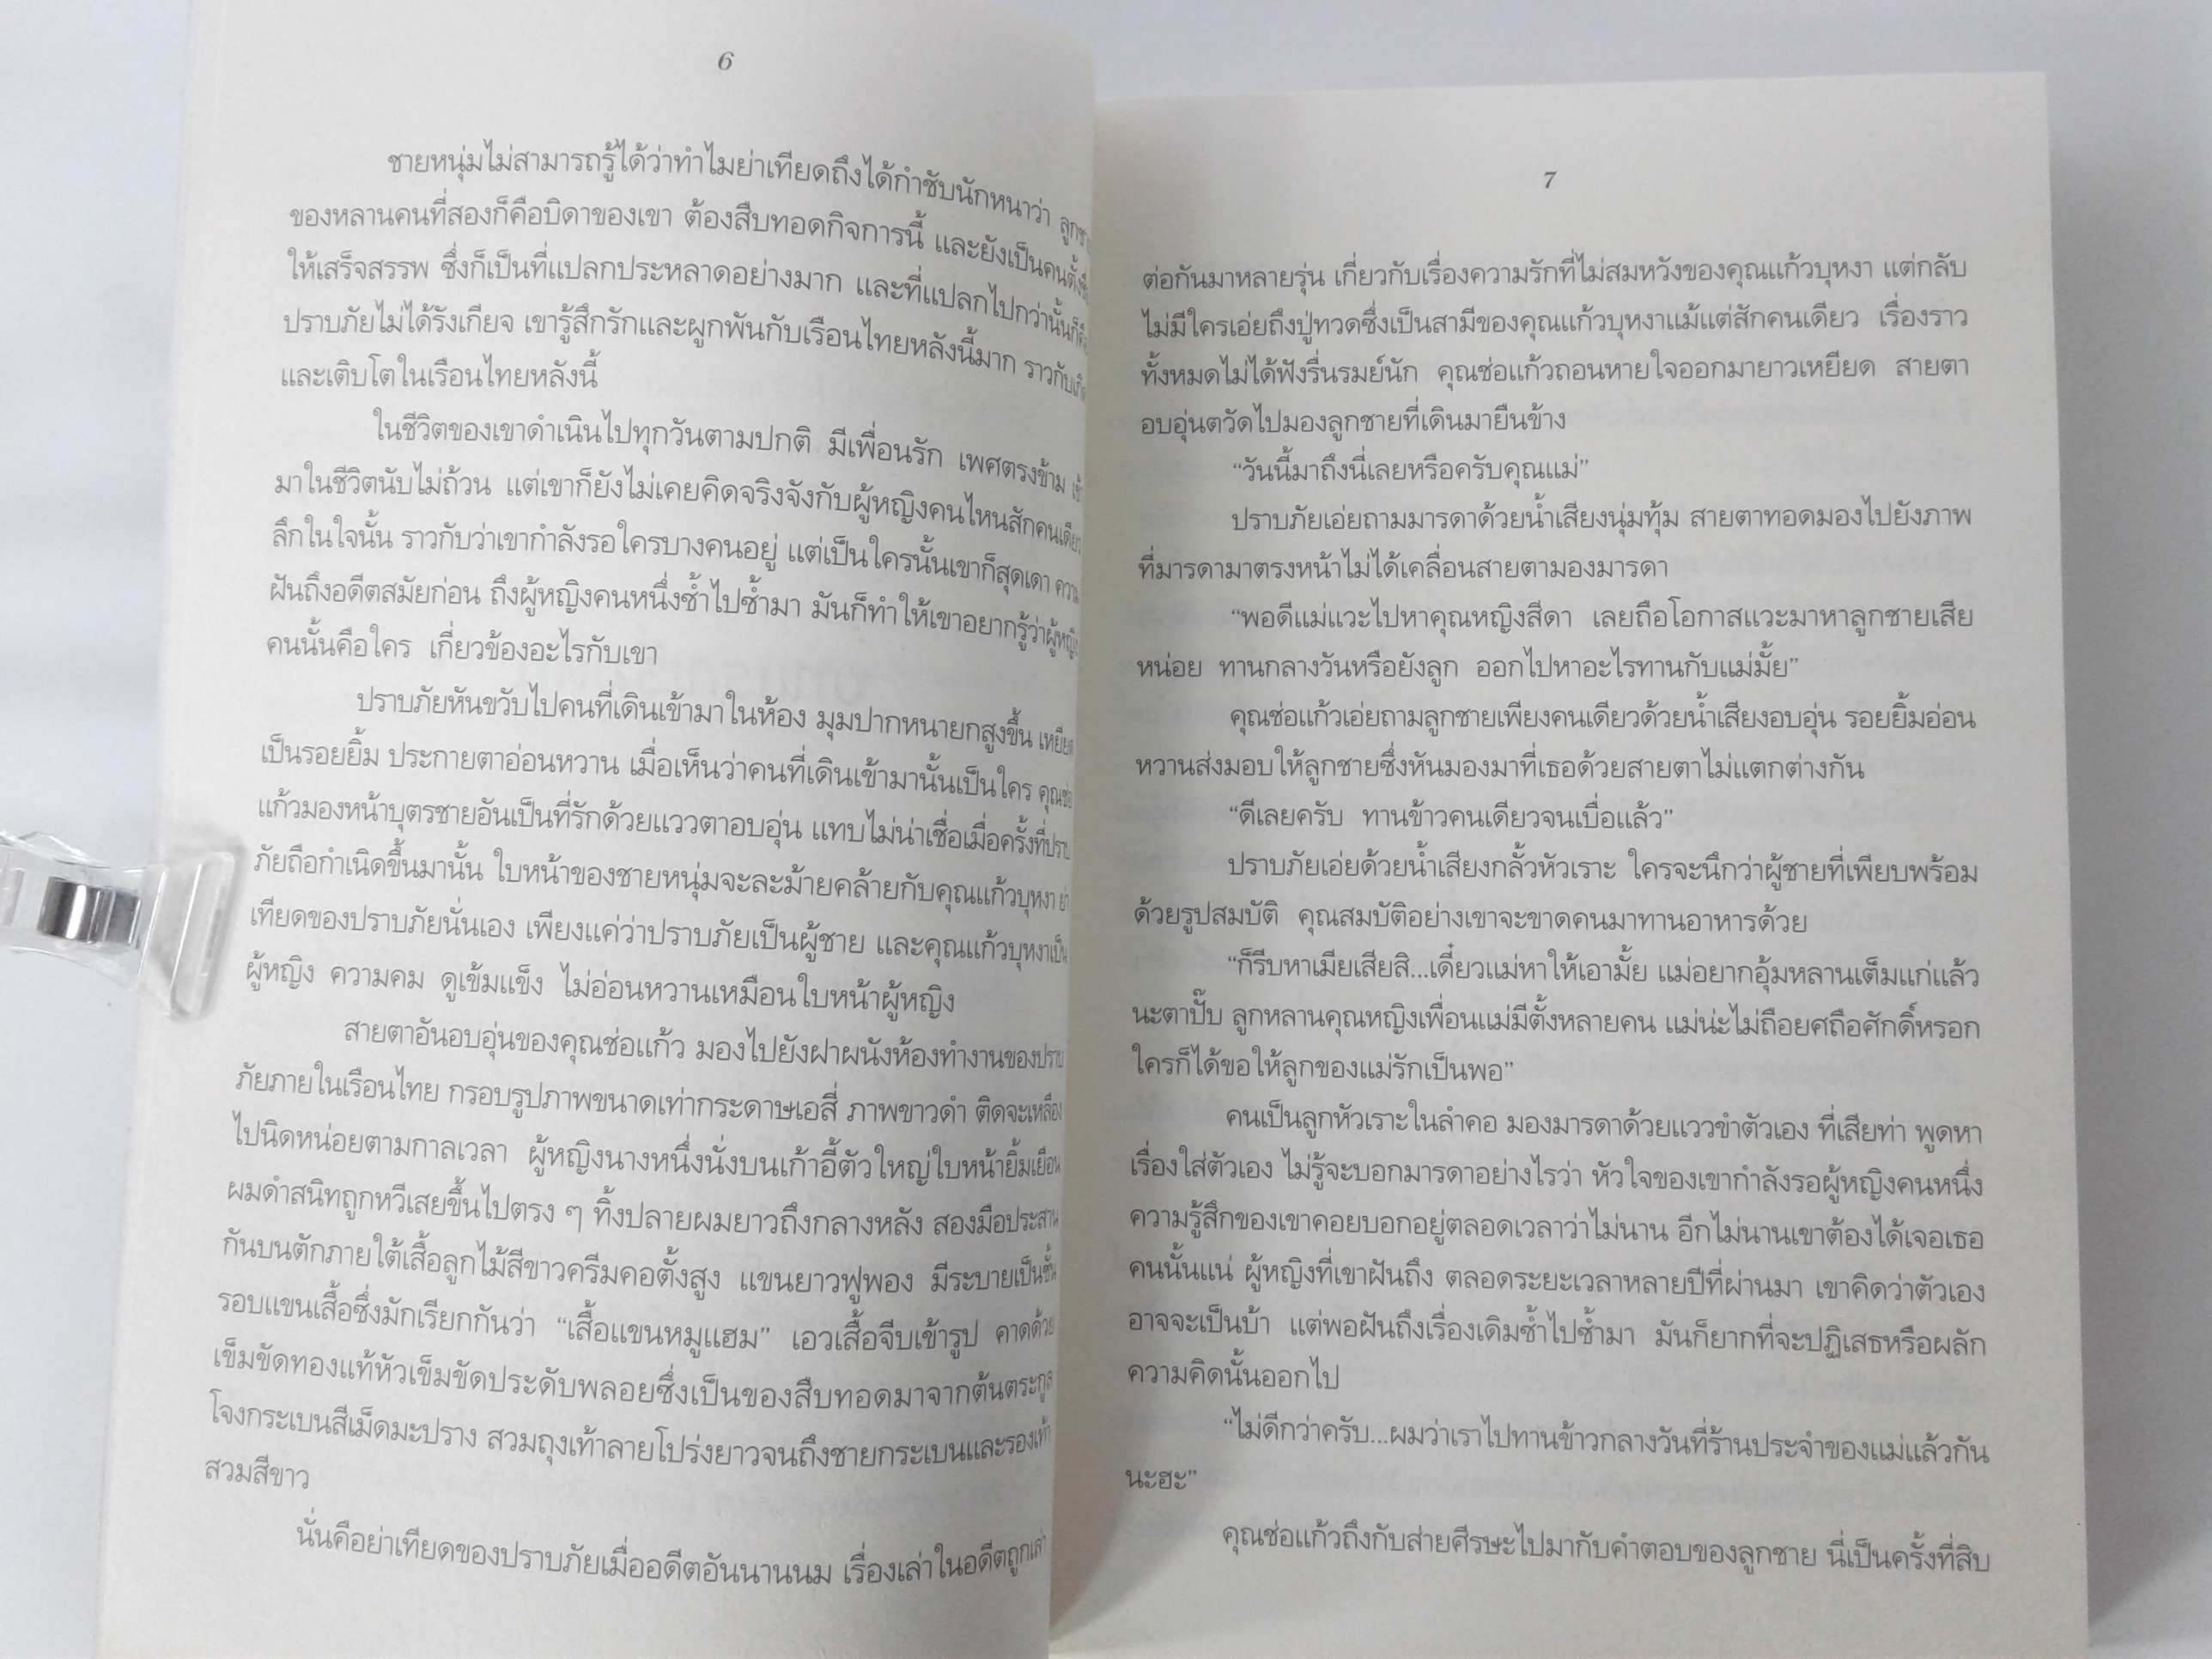 6
ชายหนุ่มไม่สามารถรู้ได้ว่าทำไมย่าเทียดถึงได้กำชับนักหนาว่า
ของหลานคนที่สองก็คือบิดาของเขา ต้องสืบทอดกิจการนี้ และยังเป็นคนตั้งชื่อ
ให้เสร็จสรรพ ซึ่งก็เป็นที่แปลกประหลาดอย่างมาก และที่แปลกไปกว่านั้นก็คือ
ปราบภัยไม่ได้รังเกียจ เขารู้สึกรักและผูกพันกับเรือนไทยหลังนี้มาก ราวกับเกิด
และเติบโตในเรือนไทยหลังนี้
ในชีวิตของเขาดำเนินไปทุกวันตามปกติ มีเพื่อนรัก เพศตรงข้าม
มาในชีวิตนับไม่ถ้วน แต่เขาก็ยังไม่เคยคิดจริงจังกับผู้หญิงคนไหนสักคนเดียว
ลึกในใจนั้น ราวกับว่าเขากำลังรอใครบางคนอยู่ แต่เป็นใครนั้นเขาก็สุดเดา
ฝันถึงอดีตสมัยก่อน ถึงผู้หญิงคนหนึ่งซ้ำไปซ้ำมา มันก็ทำให้เขาอยากรู้ว่าผู้หญิง
คนนั้นคือใคร เกี่ยวข้องอะไรกับเขา
ปราบภัยหันขวับไปคนที่เดินเข้ามาในห้อง มุมปากหนายกสูงขึ้น เหยียด
เป็นรอยยิ้ม ประกายตาอ่อนหวาน เมื่อเห็นว่าคนที่เดินเข้ามานั้นเป็นใคร คุณช่อ
แก้วมองหน้าบุตรชายอันเป็นที่รักด้วยแววตาอบอุ่น แทบไม่น่าเชื่อเมื่อครั้งที่ปราบ
ภัยถือกำเนิดขึ้นมานั้น ใบหน้าของชายหนุ่มจะละม้ายคล้ายกับคุณแก้วบุหงา ย่า
เทียดของปราบภัยนั่นเอง เพียงแค่ว่าปราบภัยเป็นผู้ชาย และคุณแก้วบุหงาเป็น
ผู้หญิง ความคม ดูเข้มแข็ง ไม่อ่อนหวานเหมือนใบหน้าผู้หญิง
สายตาอันอบอุ่นของคุณช่อแก้ว มองไปยังฝาผนังห้องทำงานของปราบ
ภัยภายในเรือนไทย กรอบรูปภาพขนาดเท่ากระดาษเอสี่ ภาพขาวดำ ติดจะเหลือง
ไปนิดหน่อยตามกาลเวลา ผู้หญิงนางหนึ่งนั่งบนเก้าอี้ตัวใหญ่ใบหน้ายิ้มเยือน
ผมดำสนิทถูกหวีเสยขึ้นไปตรง ๆ ทิ้งปลายผมยาวถึงกลางหลัง สองมือประสาน
กันบนตักภายใต้เสื้อลูกไม้สีขาวครีมคอตั้งสูง แขนยาวฟูพอง มีระบายเป็นชั้น
รอบแขนเสื้อซึ่งมักเรียกกันว่า “เสื้อแขนหมูแฮม” เอวเสื้อจีบเข้ารูป คาดด้วย
เข็มขัดทองแท้หัวเข็มขัดประดับพลอยซึ่งเป็นของสืบทอดมาจากต้นตระกูล
โจงกระเบนสีเม็ดมะปราง สวมถุงเท้าลายโปร่งยาวจนถึงชายกระเบนและรองเท้า
สวมสีขาว
นั่นคือย่าเทียดของปราบภัยเมื่ออดีตอันนานนม เรื่องเล่าในอดีตถูกเล่า
7
ต่อกันมาหลายรุ่น เกี่ยวกับเรื่องความรักที่ไม่สมหวังของคุณแก้วบุหงา แต่กลับ
ไม่มีใครเอ่ยถึงปู่ทวดซึ่งเป็นสามีของคุณแก้วบุหงาแม้แต่สักคนเดียว เรื่องราว
ทั้งหมดไม่ได้ฟังรื่นรมย์นัก คุณช่อแก้วถอนหายใจออกมายาวเหยียด สายตา
อบอุ่นตวัดไปมองลูกชายที่เดินมายืนข้าง
“วันนี้มาถึงนี่เลยหรือครับคุณแม่”
ปราบภัยเอ่ยถามมารดาด้วยน้ำเสียงนุ่มทุ้ม สายตาทอดมองไปยังภาพ
ที่มารดามาตรงหน้าไม่ได้เคลื่อนสายตามองมารดา
“พอดีแม่แวะไปหาคุณหญิงสีดา เลยถือโอกาสแวะมาหาลูกชายเสีย
หน่อย ทานกลางวันหรือยังลูก ออกไปหาอะไรทานกับแม่มั้ย”
คุณช่อแก้วเอ่ยถามลูกชายเพียงคนเดียวด้วยน้ำเสียงอบอุ่น รอยยิ้มอ่อน
หวานส่งมอบให้ลูกชายซึ่งหันมองมาที่เธอด้วยสายตาไม่แตกต่างกัน
“ดีเลยครับ ทานข้าวคนเดียวจนเบื่อแล้ว”
ปราบภัยเอ่ยด้วยน้ำเสียงกลั้วหัวเราะ ใครจะนึกว่าผู้ชายที่เพียบพร้อม
ด้วยรูปสมบัติ คุณสมบัติอย่างเขาจะขาดคนมาทานอาหารด้วย
“ก็รีบหาเมียเสียสิ...เดี๋ยวแม่หาให้เอามั้ย แม่อยากอุ้มหลานเต็มแก่แล้ว
นะตาปั๊บ ลูกหลานคุณหญิงเพื่อนแม่มีตั้งหลายคน แม่น่ะไม่ถือยศถือศักดิ์หรอก
ใครก็ได้ขอให้ลูกของแม่รักเป็นพอ”
คนเป็นลูกหัวเราะในลำคอ มองมารดาด้วยแววขำตัวเอง ที่เสียท่า พูดหา
เรื่องใส่ตัวเอง ไม่รู้จะบอกมารดาอย่างไรว่า หัวใจของเขากำลังรอผู้หญิงคนหนึ่ง
ความรู้สึกของเขาคอยบอกอยู่ตลอดเวลาว่าไม่นาน อีกไม่นานเขาต้องได้เจอเธอ
คนนั้นแน่ ผู้หญิงที่เขาฝันถึง ตลอดระยะเวลาหลายปีที่ผ่านมา เขาคิดว่าตัวเอง
อาจจะเป็นบ้า แต่พอฝันถึงเรื่องเดิมซ้ำไปซ้ำมา มันก็ยากที่จะปฏิเสธหรือผลัก
ความคิดนั้นออกไป
“ไม่ดีกว่าครับ...ผมว่าเราไปทานข้าวกลางวันที่ร้านประจำของแม่แล้วกัน
นะฮะ”
คุณช่อแก้วถึงกับส่ายศีรษะไปมากับคำตอบของลูกชาย นี่เป็นครั้งที่สิบ